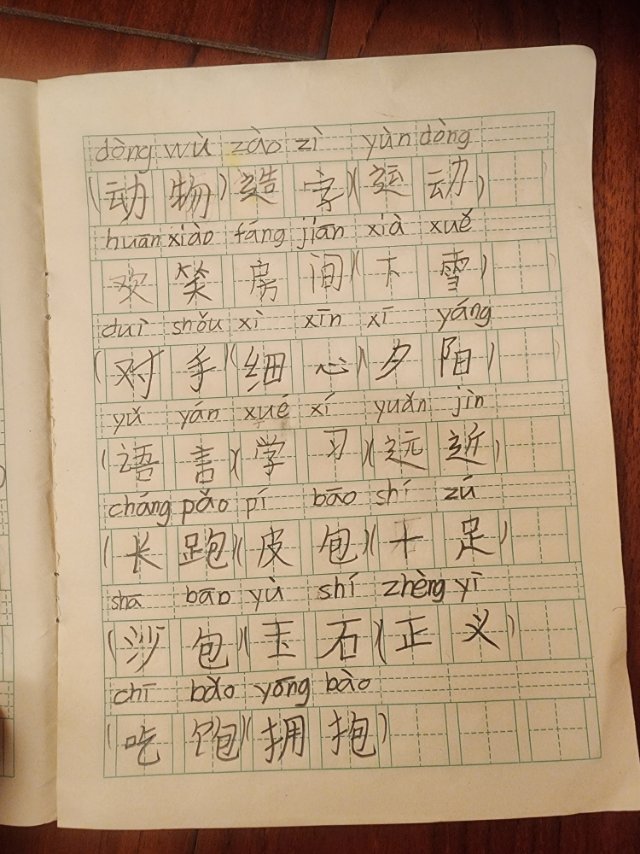 dòng wù zào zì yùn dòng
(动物)造字(运动)
huān xiào fáng jiān xià xuě
欢笑房间(下雪)
duì shǒu xì xīn xī yáng
(对手(细心(夕阳)
yǔ yán xué xí yuǎn jìn
(语言(学习(远近)
cháng pǎo pí bāo shí zú
(长跑)(皮包)(十足)
shā bāo yù shí zhèng yì
(沙包)(玉石(正义)
chī bǎo yōng bào
(吃饱)(拥抱)